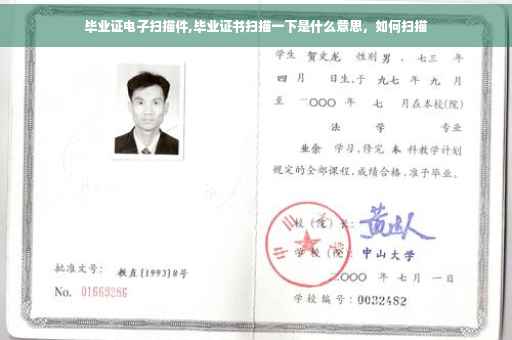 毕业证电子扫描件,毕业证书扫描一下是什么意思，如何扫描
学生 贺文龙 性别 男 ，七三 年
四 月 日生,于 九七 年 九 月
至 二〇〇〇 年 七 月在本校(院)
法 学 专业
业余 学习,修完 本 科教学计划
规定的全部课程,成绩合格,准予毕业。
校（院）长：
学校（院） 中山大学
二〇〇〇 年 七 月 一 日
批准文号： 教直[1993]8号
No. 01669286
学校编号：0032482